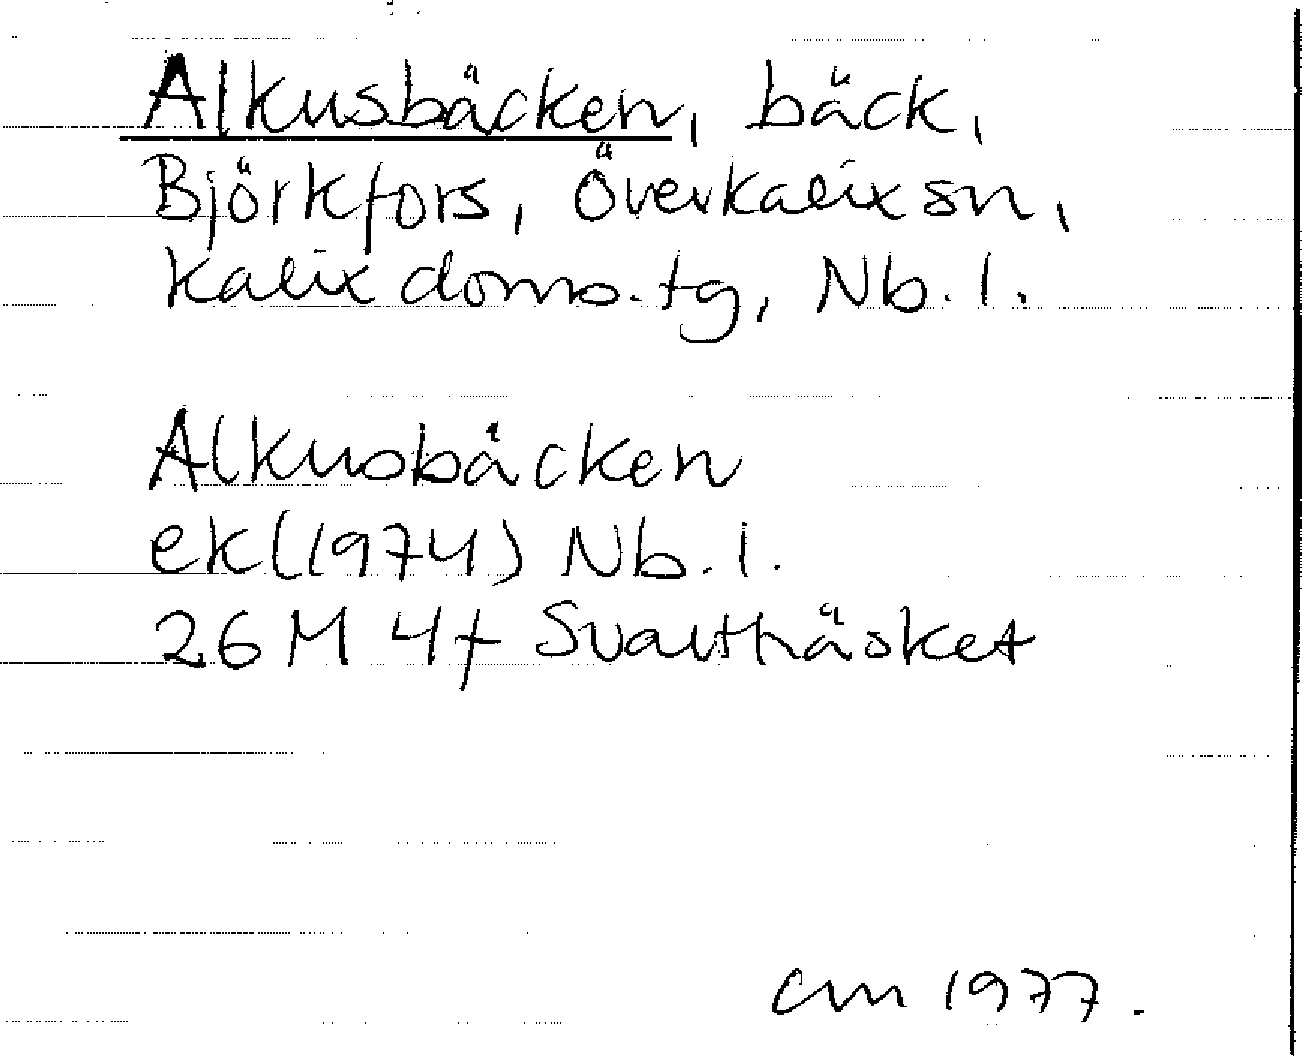 Alkusbäcken, bäck,
Björkfors, Överkalix sn,
Kalix doms.tg, Nb. l.
Alkusbäcken
ek (1974) Nb. l.
26 M 4f Svartträsket
cm 1977.